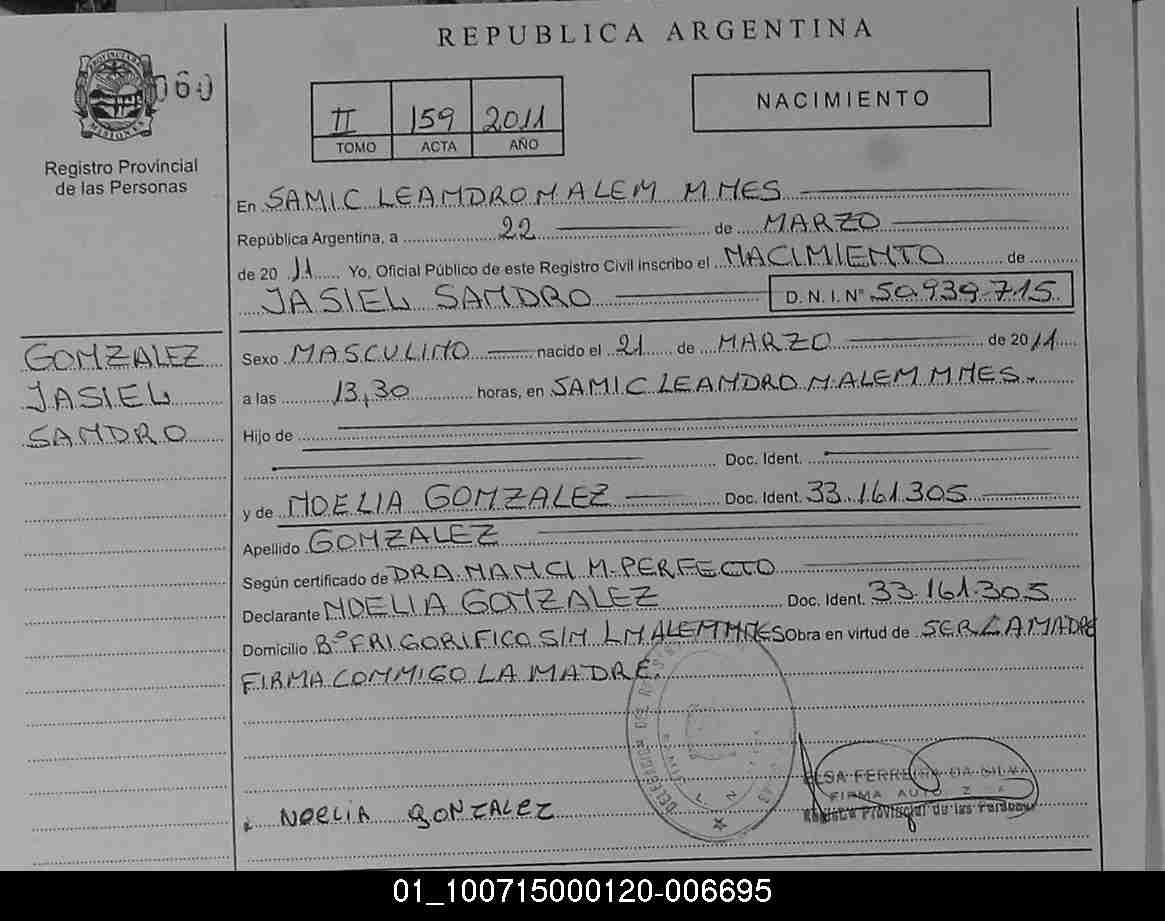 REPUBLICA ARGENTINA
060
PROVINCIA
MISIONES
Registro Provincial
de las Personas
II 159 2011
TOMO ACTA AÑO
NACIMIENTO
En SAMIC LEANDRO N ALEM MNES
República Argentina, a 22 de MARZO
de 20 11 Yo, Oficial Público de este Registro Civil inscribo el NACIMIENTO de
JASIEL SANDRO D.N.I. Nº 50.939.715
GONZALEZ
JASIEL
SANDRO
Sexo MASCULINO nacido el 21 de MARZO de 2011
a las 13,30 horas, en SAMIC LEANDRO N ALEM MNES.
Hijo de
Doc. Ident.
y de NOELIA GONZALEZ Doc. Ident. 33.161.305
Apellido GONZALEZ
Según certificado de DRA. NANCI M. PERFECTO
Declarante NOELIA GONZALEZ Doc. Ident. 33.161.305
Domicilio Bº FRIGORIFICO S/N L N ALEM MNES Obra en virtud de SER LA MADRE
FIRMA CONMIGO LA MADRE.
ELSA FERREIRA DA SILVA
FIRMA AUTO
Registro Provincial de las Personas
NOELIA GONZALEZ
01_100715000120-006695